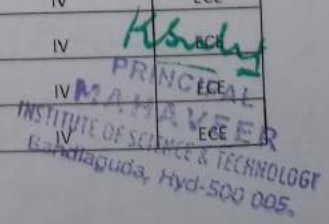 IV ECE
IV ECE
IV ECE
IV ECE
PRINCIPAL
MAHAVEER
INSTITUTE OF SCIENCE & TECHNOLOGY
Bandlaguda, Hyd-500 005.